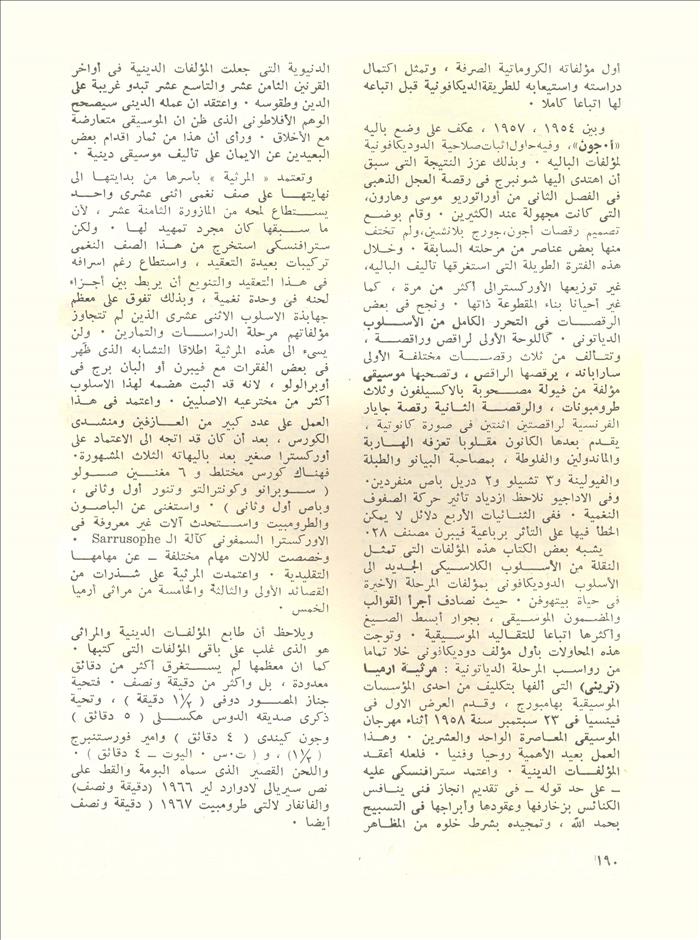 أول مؤلفاته الكروماتية الصرفة ، وتمثل اكتمال
دراسته واستيعابه للطريقةالديكافونية قبل اتباعه
لها اتباعا كاملا ·
وبين ١٩٥٤ ، ١٩٥٧ ، عكف على وضع باليه
«أ·جون»، وفيه حاول اثبات صلاحية الدوديكافونية
لمؤلفات الباليه · وبذلك عزز النتيجة التى سبق
أن اهتدى اليها شونبرج فى رقصة العجل الذهبى
فى الفصل الثانى من أوراتوريو موسى وهارون،
التى كانت مجهولة عند الكثيرين · وقام بوضـع
تصميم رقصات أجون،جورج بلانشين،ولم تختف
منها بعض عناصر من مرحلته السابقة · وخـلال
هذه الفترة الطويلة التى استغرقها تأليف الباليه،
غير توزيعها الأوركسترالى أكثر من مرة ، كما
غير أحيانا بناء المقطوعة ذاتها · ونجح فى بعض
الرقصـات فى التحرر الكامل من الأسـلوب
الدياتونى · كاللوحة الأولى لراقص وراقصـة ،
وتتـألف من ثلاث رقصـات مختلفـة الأولى
ساراباند ، يرقصها الراقص ، وتصحبها موسيقى
مؤلفة من فيولة مصـحوبة بالاكسيلفون وثلاث
طرومبونات ، والرقصـة الثـانية رقصة جايار
الفرنسية لراقصتين اثنتين فى صورة كانونية ،
يقدم بعدها الكانون مقلوبا تعزفه الهـاربة
والماندولين والفلوطة ، بمصاحبة البيانو والطبلة
والفيولينة و٣ تشيلو و٢ دربل باص منفردين·
وفى الاداجيو نلاحظ ازدياد تأثير حركة الصفوف
النغمية · ففى الثنـائيات الأربع دلائل لا يمكن
الخطأ فيها على التأثر برباعية فيبرن مصنف ٢٨·
يشبه بعض الكتاب هذه المؤلفات التى تمثـل
النقلة من الأسـلوب الكلاسـيكى الجديد الى
الأسلوب الدوديكافونى بمؤلفات المرحلة الأخيرة
فى حياة بيتهوفن · حيث نصادف أجرأ القوالب
والمضـمون الموسـيقى ، بجوار أبسط الصـيغ
وأكثرها اتباعا للتقـاليد الموسـيقية · وتوجت
هذه المحاولات بأول مؤلف دوديكافونى خلا تماما
من رواسب المرحلة الدياتونية : مرثيـة ارميا
(ترينى) التى ألفها بتكليف من احدى المؤسسات
الموسيقية بهامبورج ، وقدم العرض الأول فى
فينسيا فى ٢٣ سبتمبر سنة ١٩٥٨ أثناء مهرجان
الموسيقى المعاصرة الواحد والعشرين · وهـذا
العمل بعيد الأهمية روحيا وفنيا · فلعله أعقـد
المؤلفـات الدينية · واعتمد سترافنسكى عليه
ــ على حد قوله ــ فى تقديم انجاز فنى ينـافس
الكنائس بزخارفها وعقودها وأبراجها فى التسبيح
بحمد الله ، وتمجيده بشرط خلوه من المظـاهر
الدنيوية التى جعلت المؤلفات الدينية فى أواخر
القرنين الثامن عشر والتاسع عشر تبدو غريبة على
الدين وطقوسه · واعتقد ان عمله الدينى سيصحح
الوهم الأفلاطونى الذى ظن ان الموسيقى متعارضة
مع الأخلاق · ورأى أن هذا من ثمار اقدام بعض
البعيدين عن الايمان على تأليف موسيقى دينية ·
وتعتمد « المرثية » بأسرها من بدايتهـا الى
نهايتهـا على صف نغمى اثنى عشرى واحـد
يسـتطاع لمحه من المازورة الثامنة عشر ، لأن
ما سـبقها كان مجرد تمهيد لهـا · ولكن
سترافنسكى استخرج من هـذا الصف النغمى
تركيبات بعيدة التعقيد ، واستطاع رغم اسرافه
فى هـذا التعقيد والتنويع أن يربط بين أجـزاء
لحنه فى وحدة نغمية ، وبذلك تفوق على معظم
جهابذة الاسلوب الاثنى عشرى الذين لم تتجاوز
مؤلفاتهم مرحلة الدراسـات والتمارين · ولن
يسىء الى هذه المرثية اطلاقا التشابه الذى ظهر
فى بعض الفقرات مع فيبرن أو البان برج فى
أوبرالولو ، لانه قد اثبت هضمه لهذا الاسلوب
أكثر من مخترعيه الاصليين · واعتمد فى هـذا
العمل على عدد كبير من العـازفين ومنشـدى
الكورس ، بعد أن كان قد اتجه الى الاعتماد على
أوركسترا صغير بعد باليهاته الثلاث المشهورة·
فهنـاك كورس مختلط و ٦ مغنـين صـولو
( سـوبرانو وكونترالتو وتنور أول وثانى ،
وباص أول وثانى ) · واستغنى عن الباصـون
والطرومبيت واسـتحدث آلات غير معروفة فى
الاوركسترا السمفونى كآلة ال Sarrusophe ·
وخصصت للالات مهام مختلفة ــ عن مهامهـا
التقليدية · واعتمدت المرثية على شـذرات من
القصائد الأولى والثالثة والخامسة من مراثى أرميا
الخمس ·
ويلاحظ أن طابع المؤلفـات الدينية والمراثى
هو الذى غلب على باقى المؤلفات التى كتبها ·
كما ان معظمها لم يسـتغرق أكثر من دقائق
معدودة ، بل وأكثر من دقيقة ونصف · فتحية
جناز المصـور دوفى ( ١½ دقيقة ) ، وتحية
ذكرى صديقه الدوس هكسـلى ( ٥ دقائق )
وجون كيندى ( ٤ دقائق ) وامير فورستنبرج
( ١½) ، و ( ت·س · اليوت ــ ٤ دقائق ) ·
واللحن القصير الذى سماه البومة والقط على
نص سيريالى لادوارد لير ١٩٦٦ (دقيقة ونصف)
والفانفار لالتى طرومبيت ١٩٦٧ ( دقيقة ونصف
أيضا ·
١٩٠